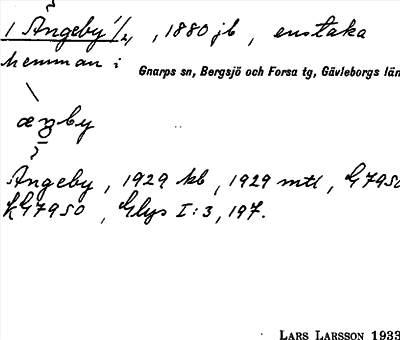 1 Ängeby 1/4, 1880 jb, enstaka
hemman i Gnarps sn, Bergsjö och Forsa tg, Gävleborgs län
æŋby
Ängeby, 1929 kb, 1929 mtl, G7950
KG7950, Glys I:3, 197.
LARS LARSSON 1933